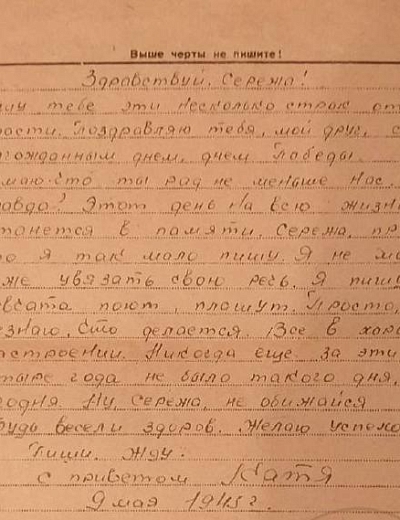 Выше черты не пишите!
Здравствуй, Сережа!
шу тебе эти несколько строк от
рости. Поздравляю тебя, мой друг, с
гожданным днем, днем Победы.
маю что ты рад не меньше нас.
равда? Этот день на всю жизнь
танется в памяти. Сережа, пр
то я так мало пишу. Я не мо
же увязать свою речь. Я пишу
ебята поют, пляшут. Просто,
езнаю, что делается. Все в хоро
астроении. Никогда еще за эти
тыре года не было такого дня,
годня. Ну, Сережа, не обижайся
Будь весел и здоров. Желаю успехо
Пиши. Жду.
с приветом Катя
9 мая 1945 г.